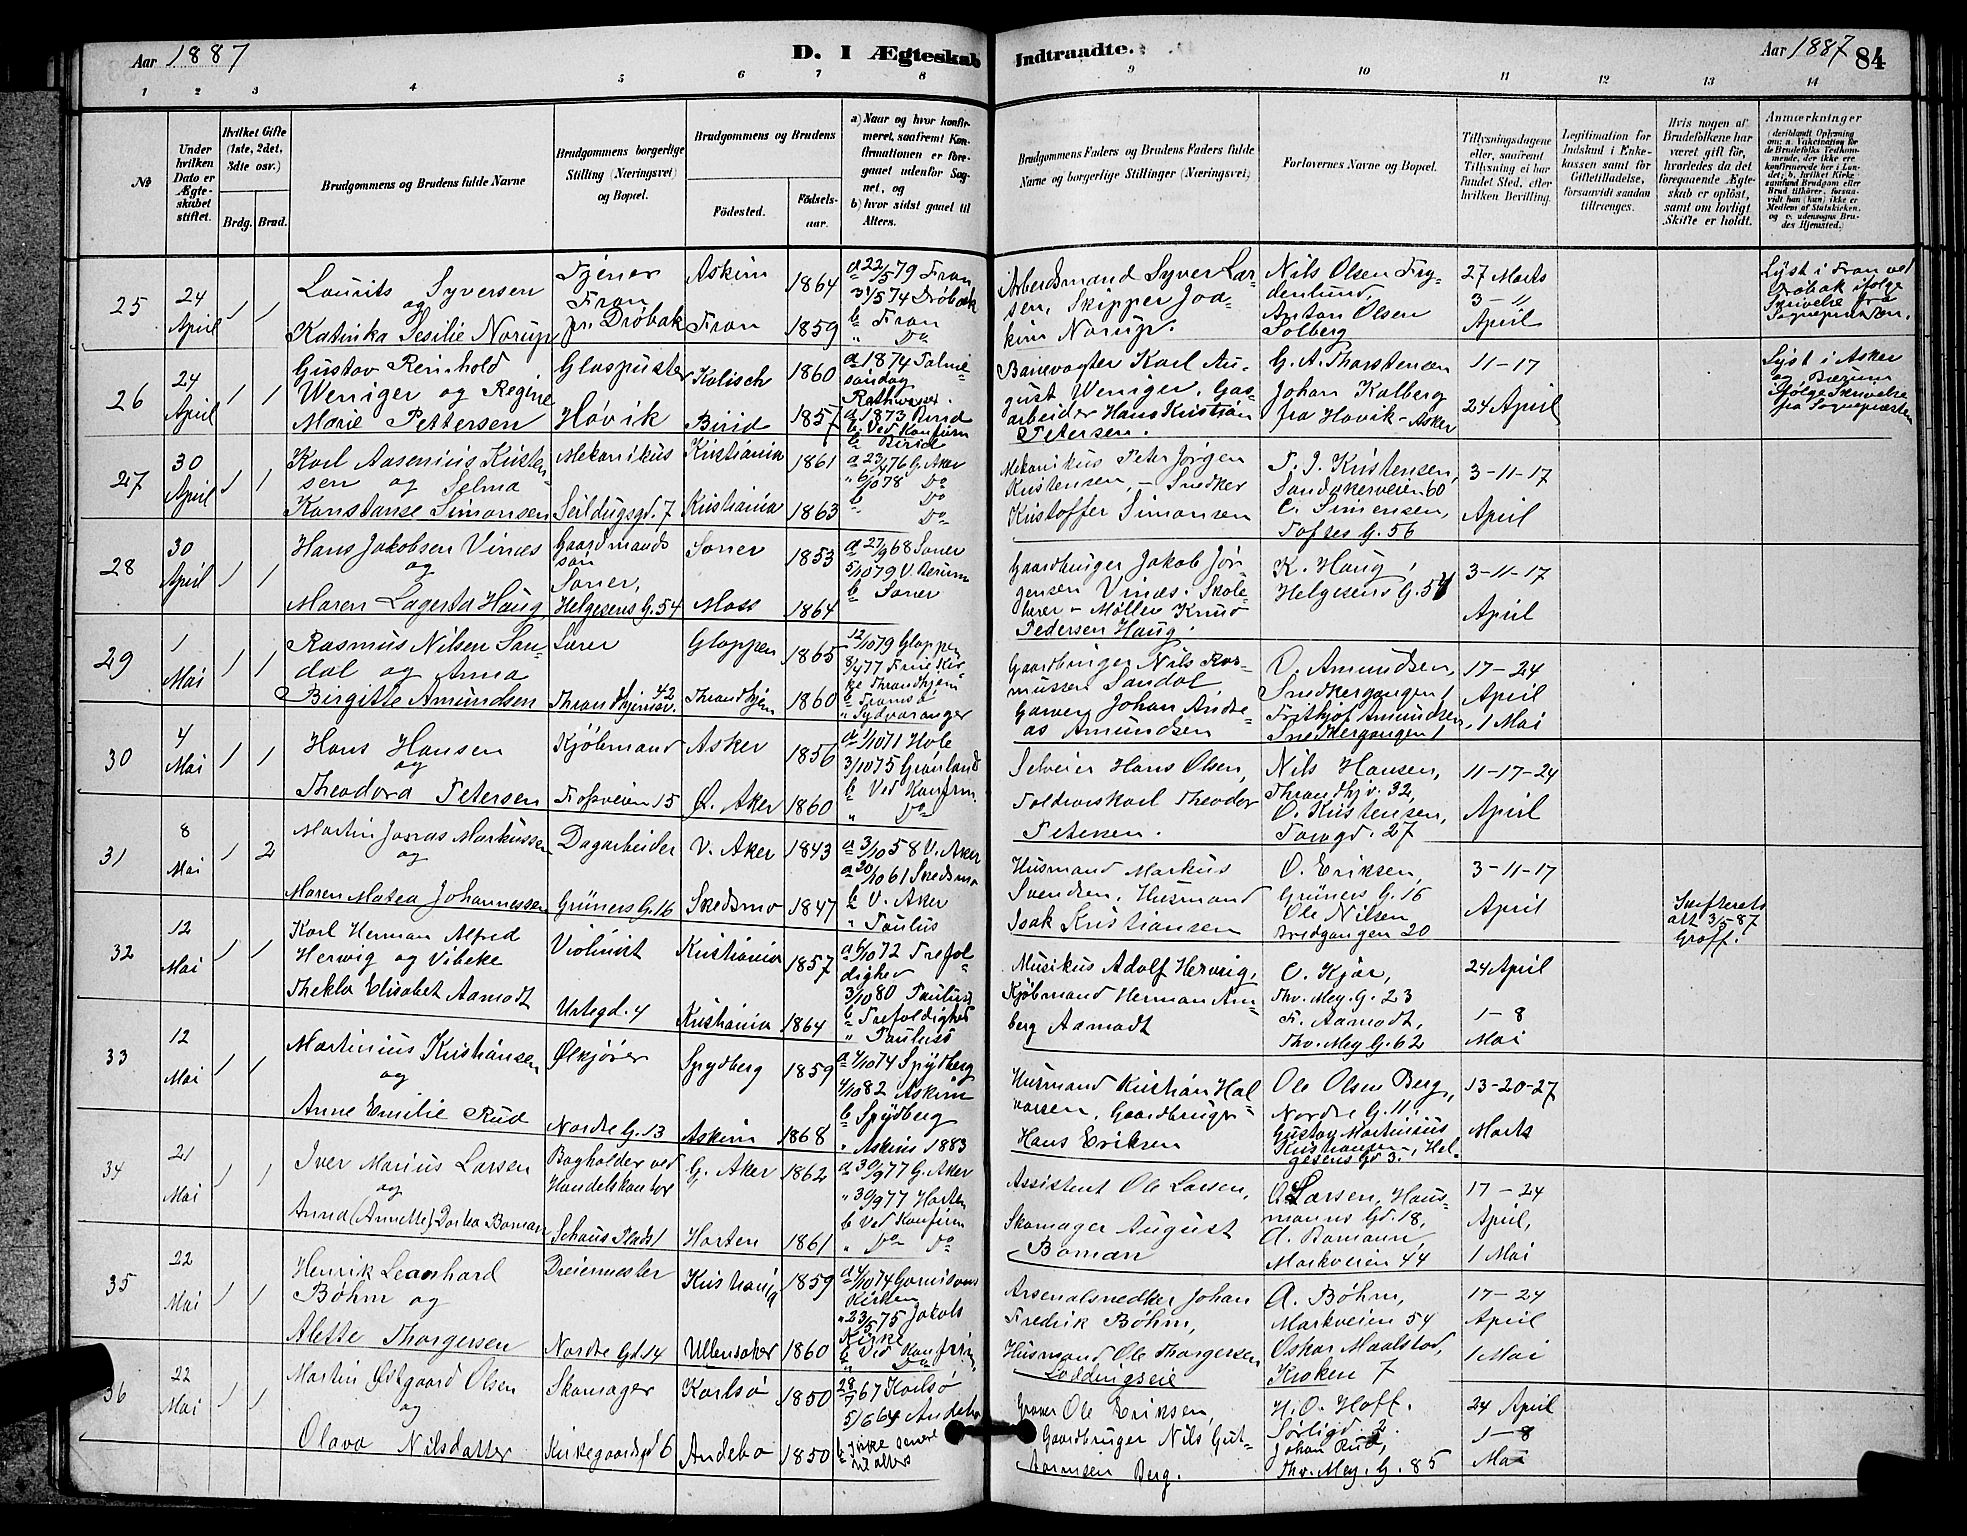 Aar 1887
D. I Ægteskab Indtraadte.
Aar 1887 84
1 2 3 4 5 6 7 8 9 10 11 12 13 14
No
Under hvilken Dato er Ægteskabet stiftet.
Hvilket Gifte (1ste, 2det, 3die osv.)
Brdg. Brud.
Brudgommens og Brudens fulde Navne
Brudgommens borgerlige Stilling (Næringsvei) og Bopæl.
Brudgommens og Brudens
Fødested.
Fødselsaar.
a) Naar og hvor konfirmeret, saafremt Konfirmationen er foregaaet udenfor Sognet, og
b) hvor sidst gaaet til Alters.
Brudgommens Faders og Brudens Faders fulde Navne og borgerlige Stillinger (Næringsvei)
Forlovernes Navne og Bopæl.
Tillysningsdagene eller, saafremt Tillysning ei har fundet Sted, efter hvilken Bevilling.
Legitimation for Indskud i Enkekassen samt for Giftetilladelse, forsaavidt sandan tiltrænges.
Hvis nogen af Brudefolkene har været gift før, hvorledes da det foregaaende Ægteskab er opløst, samt om lovligt Skifte er holdt.
Anmærkninger
25
24 April
1 1
Laurits Syversen
og
Katinka Sesilie Norup
Tjener
Fron
pr. Drøbak
Askim 1864
Fron 1859
a 22/5 79 Fron
31/5 74 Drøbak
b Fron
" Do
Arbeidsmand Syver Larsen, Skipper Joakim Norup.
Nils Olsen Frydenlund,
Anton Olsen
Solberg
27 Marts
3 - "
April
Lyst i Fron ved
Drøbak ifølge
Skrivelse fra
Sognepræsten.
26
24 April
1 1
Gustav Reinhold
Werniger og Regine
Marie Pettersen
Glaspuster
Høvik
Kalisch 1860
Birid 1857
a 1874 Palmesøndag
a 1873 Birid
b. Ved Konfirm
b Birid
Banevogter Karl August Werniger, Gasarbeider Hans Kristian
Petersen.
G. A. Thorstensen
Johan Kalberg
fra Høvik - Asker
11-17
24 April
Lyst i Asker
og Bærum
ifølge Skrivelse
fra Sognepræsten
27
30 April
1 1
Karl Aasenius Kristensen og Selma
Konstanse Simonsen
Mekanikus
Seildugsgd. 7
Kristiania 1861
Kristiania 1863
a 23/4 76 G. Aker
" 6/10 78 Do
b Do
Do
Mekanikus Peter Jørgen
Kristensen, - Snedker
Kristoffer Simonsen
P. J. Kristensen,
Sandakerveien 60
C. Simensen,
Toftes G. 56
3-11-17
April
28
30 April
1 1
Hans Jakobsen Vinæs
og
Maren Lagerta Haug
Gaardmandssøn
Soner,
Helgesens G. 54
Soner 1853
Moss 1864
a 27/9 68 Soner
5/10 79 V. Bærum
b Soner
Gaardbruger Jakob Jørgensen Vinæs. Skolelærer - Møller Knud
Pedersen Haug.
K. Haug,
Helgesens G. 54
3-11-17
April
29
1 Mai
1 1
Rasmus Nilsen Sandal og Anna
Birgitte Amundsen
Lærer
Throndhjemsv. 42
Gloppen 1865
Throndhjem 1860
12/10 79 Gloppen
8/4 77 Frue Kirke Throndhjem
b Tromsø
" Sydvaranger
Gaardbruger Nils Rasmussen Sandal
Garver Johan Andreas Amundsen
O. Amundsen,
Snedkergangen 1
Frithjof Amundsen,
Snedkergangen 1
17-24
April
1 Mai
30
4 Mai
1 1
Hans Hansen
og
Theodora Petersen
Kjøbmand
Fossveien 15
Asker 1856
Ø. Aker 1860
a 1/10 71 Hole
3/10 75 Grønland
b Ved Konfirm.
" Do
Selveier Hans Olsen,
Toldrorskarl Theodor
Petersen.
Nils Hansen,
Throndhjv. 32,
O. Kristensen,
Torvgd. 27
11-17-24
April
31
8 Mai
1 2
Martin Jonas Markussen
og
Maren Matea Johannessen
Dagarbeider
Grüners G. 16
V. Aker 1843
Skedsmo 1847
a 3/10 58 V. Aker
a 20/10 61 Skedsmo
b V. Aker
" Paulus
Husmand Markus
Svendsen, Husmand
Isak Kristiansen
O. Eriksen,
Grüners G. 16
Ole Nilsen
Bredgangen 20
3-11-17
April
Skifterets
att 3/5 87
Graff.
32
12 Mai
1 1
Karl Herman Alfred
Herwig og Vibeke
Thekla Elisabet Aamodt
Violinist
Urtegd. 4
Kristiania 1857
Kristiania 1864
a 6/10 72 Trefoldighed
3/10 80 Paulus
b Trefoldighed
" Paulus
Musikus Adolf Herwig,
Kjøbmand Herman Amberg Aamodt
O. Kjær,
Thv. Mey. G. 23
F. Aamodt,
Thv. Mey G. 62
24 April
1-8
Mai
33
12 Mai
1 1
Martinius Kristiansen
og
Anne Emilie Rud
Ølkjører
Nordre G. 13
Spydberg 1859
Askim 1868
a 4/10 74 Spydberg
1/10 82 Askim
b Spydberg
" Askim 1883
Husmand Kristian Halvorsen, Gaardbruger
Hans Eriksen
Ole Olsen Berg,
Nordre G. 11
Gustav Martinius
Kristiansen, Helgesens Gd 3.
13-20-27
Marts
34
21 Mai
1 1
Iver Marius Larsen
og
Anna (Annette) Dortea Boman
Bogholder ved
Handelskontor
Schous Plads 1
G. Aker 1862
Horten 1861
a 30/9 77 G. Aker
" 30/9 77 Horten
b Ved Konfirm
" Do Do
Assistent Ole Larsen,
Skomager August
Boman
O. Larsen, Hausmanns Gd. 18,
A. Bomann,
Markveien 44
17-24
April,
1 Mai
35
22 Mai
1 1
Henrik Leonhard
Bøhm og
Alette Thorgersen
Dreiermester
Nordre Gd. 14
Kristiania 1859
Ullensaker 1860
a 4/10 74 Garnisons
Kirken
" 23/5 75 Jakobs
Kirke
b Ved Konfirm.
" Do
Arsenalsnedker Johan
Fredrik Bøhm,
Husmand Ole Thorgersen
Løddingseie
A. Bøhm,
Markveien 54
Oskar Maalstad,
Kroken 7
17-24
April
1 Mai
36
22 Mai
1 1
Martin Østgaard Olsen
og
Olava Nilsdatter
Skomager
Kirkegaardsgd 6
Karlsø 1850
Andebo 1850
28/7 67 Karlsø
5/6 64 Andebo
b ikke senere
til alters
Graver Ole Eriksen,
Gaardbruger Nils Guttormsen Berg.
H. O. Hoff.
Sørligd. 2.
Johan Rud,
Thv. Mey. G. 85
24 April
1-8
Mai